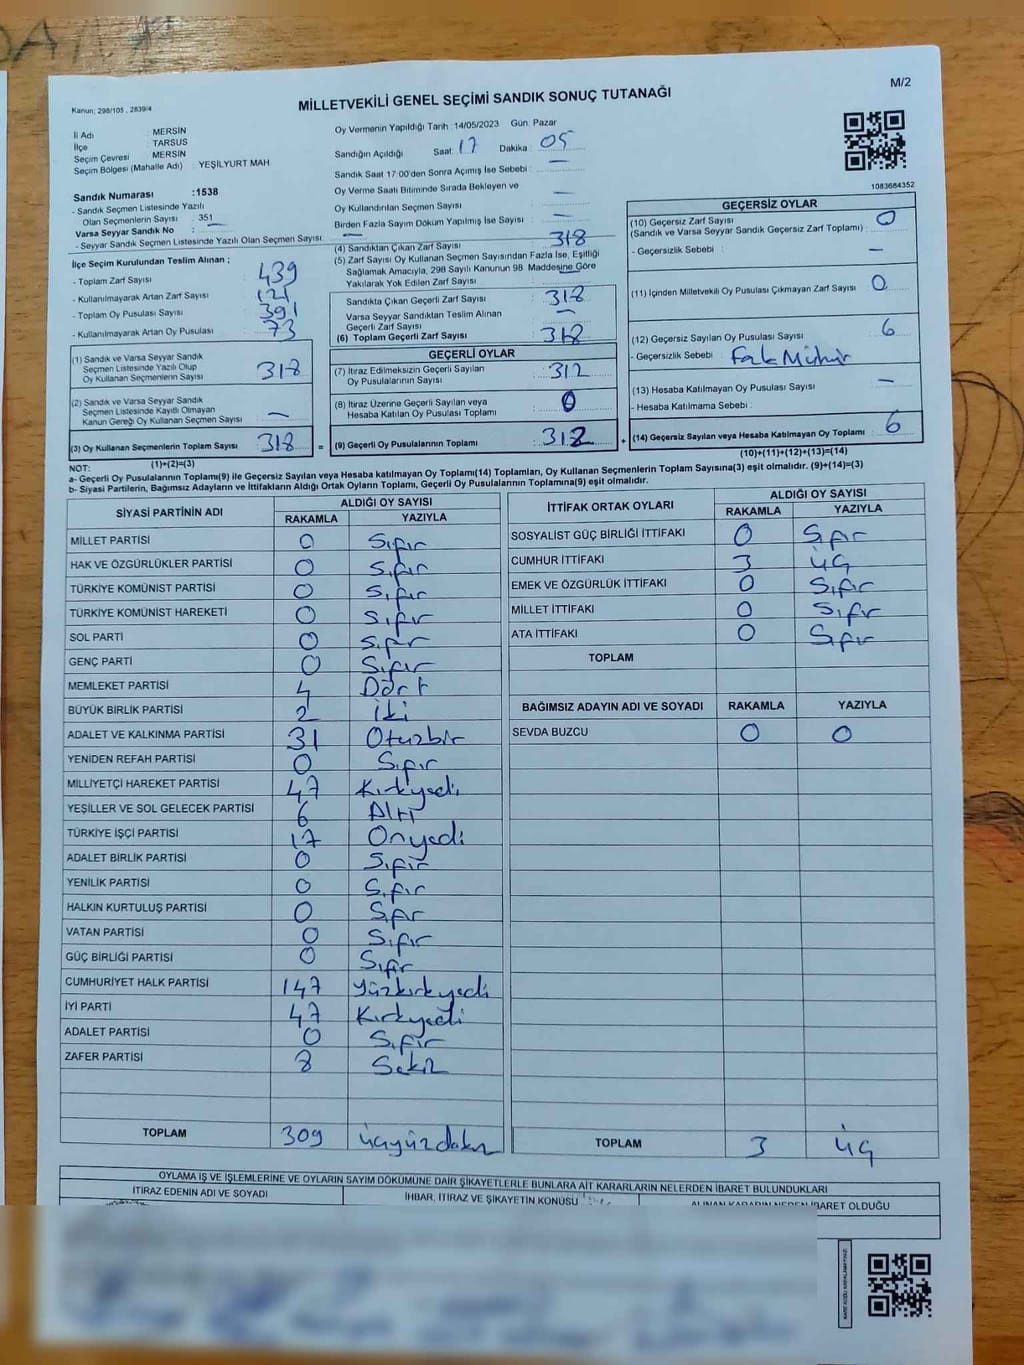 M/2
Kanun; 298/105 , 2839/4
MİLLETVEKİLİ GENEL SEÇİMİ SANDIK SONUÇ TUTANAĞI
İl Adı : MERSİN
İlçe : TARSUS
Seçim Çevresi : MERSİN
Seçim Bölgesi (Mahalle Adı) : YEŞİLYURT MAH
Sandık Numarası :1538
- Sandık Seçmen Listesinde Yazılı
Olan Seçmenlerin Sayısı : 351
Varsa Seyyar Sandık No : —
- Seyyar Sandık Seçmen Listesinde Yazılı Olan Seçmen Sayısı: —
İlçe Seçim Kurulundan Teslim Alınan ;
- Toplam Zarf Sayısı : 439
- Kullanılmayarak Artan Zarf Sayısı : 121
- Toplam Oy Pusulası Sayısı : 391
- Kullanılmayarak Artan Oy Pusulası : 73
(1) Sandık ve Varsa Seyyar Sandık
Seçmen Listesinde Yazılı Olup
Oy Kullanan Seçmenlerin Sayısı : 318
(2) Sandık ve Varsa Seyyar Sandık
Seçmen Listesinde Kayıtlı Olmayan
Kanun Gereği Oy Kullanan Seçmen Sayısı : —
(3) Oy Kullanan Seçmenlerin Toplam Sayısı : 318 =
(1)+(2)=(3)
Oy Vermenin Yapıldığı Tarih :14/05/2023 Gün: Pazar
Sandığın Açıldığı Saat: 17 Dakika : 05
Sandık Saat 17:00'den Sonra Açımış İse Sebebi : —
Oy Verme Saati Bitiminde Sırada Bekleyen ve
Oy Kullandırılan Seçmen Sayısı : —
Birden Fazla Sayım Döküm Yapılmış İse Sayısı : —
(4) Sandıktan Çıkan Zarf Sayısı : 318
(5) Zarf Sayısı Oy Kullanan Seçmen Sayısından Fazla İse, Eşitliği
Sağlamak Amacıyla, 298 Sayılı Kanunun 98 Maddesine Göre
Yakılarak Yok Edilen Zarf Sayısı : —
Sandıkta Çıkan Geçerli Zarf Sayısı : 318
Varsa Seyyar Sandıktan Teslim Alınan
Geçerli Zarf Sayısı : —
(6) Toplam Geçerli Zarf Sayısı : 318
GEÇERLİ OYLAR
(7) İtiraz Edilmeksizin Geçerli Sayılan
Oy Pusulalarının Sayısı : 312
(8) İtiraz Üzerine Geçerli Sayılan veya
Hesaba Katılan Oy Pusulası Toplamı : 0
(9) Geçerli Oy Pusulalarının Toplamı : 312 +
1083684352
GEÇERSİZ OYLAR
(10) Geçersiz Zarf Sayısı
(Sandık ve Varsa Seyyar Sandık Geçersiz Zarf Toplamı) : 0
- Geçersizlik Sebebi : —
(11) İçinden Milletvekili Oy Pusulası Çıkmayan Zarf Sayısı : 0
(12) Geçersiz Sayılan Oy Pusulası Sayısı : 6
- Geçersizlik Sebebi : Fazla Mühür
(13) Hesaba Katılmayan Oy Pusulası Sayısı : —
- Hesaba Katılmama Sebebi :
(14) Geçersiz Sayılan veya Hesaba Katılmayan Oy Toplamı : 6
(10)+(11)+(12)+(13)=(14)
NOT:
a- Geçerli Oy Pusulalarının Toplamı(9) ile Geçersiz Sayılan veya Hesaba katılmayan Oy Toplamı(14) Toplamları, Oy Kullanan Seçmenlerin Toplam Sayısına(3) eşit olmalıdır. (9)+(14)=(3)
b- Siyasi Partilerin, Bağımsız Adayların ve İttifakların Aldığı Ortak Oyların Toplamı, Geçerli Oy Pusulalarının Toplamına(9) eşit olmalıdır.
SİYASİ PARTİNİN ADI ALDIĞI OY SAYISI
RAKAMLA YAZIYLA
MİLLET PARTİSİ 0 Sıfır
HAK VE ÖZGÜRLÜKLER PARTİSİ 0 Sıfır
TÜRKİYE KOMÜNİST PARTİSİ 0 Sıfır
TÜRKİYE KOMÜNİST HAREKETİ 0 Sıfır
SOL PARTİ 0 Sıfır
GENÇ PARTİ 0 Sıfır
MEMLEKET PARTİSİ 4 Dört
BÜYÜK BİRLİK PARTİSİ 2 İki
ADALET VE KALKINMA PARTİSİ 31 Otuzbir
YENİDEN REFAH PARTİSİ 0 Sıfır
MİLLİYETÇİ HAREKET PARTİSİ 47 Kırkyedi
YEŞİLLER VE SOL GELECEK PARTİSİ 6 Altı
TÜRKİYE İŞÇİ PARTİSİ 17 Onyedi
ADALET BİRLİK PARTİSİ 0 Sıfır
YENİLİK PARTİSİ 0 Sıfır
HALKIN KURTULUŞ PARTİSİ 0 Sıfır
VATAN PARTİSİ 0 Sıfır
GÜÇ BİRLİĞİ PARTİSİ 0 Sıfır
CUMHURİYET HALK PARTİSİ 147 Yüzkırkyedi
İYİ PARTİ 47 Kırkyedi
ADALET PARTİSİ 0 Sıfır
ZAFER PARTİSİ 8 Sekiz
TOPLAM 309 üçyüzdokuz
İTTİFAK ORTAK OYLARI ALDIĞI OY SAYISI
RAKAMLA YAZIYLA
SOSYALİST GÜÇ BİRLİĞİ İTTİFAKI 0 Sıfır
CUMHUR İTTİFAKI 3 üç
EMEK VE ÖZGÜRLÜK İTTİFAKI 0 Sıfır
MİLLET İTTİFAKI 0 Sıfır
ATA İTTİFAKI 0 Sıfır
TOPLAM
BAĞIMSIZ ADAYIN ADI VE SOYADI RAKAMLA YAZIYLA
SEVDA BUZCU 0 0
TOPLAM 3 üç
OYLAMA İŞ VE İŞLEMLERİNE VE OYLARIN SAYIM DÖKÜMÜNE DAİR ŞİKAYETLERLE BUNLARA AİT KARARLARIN NELERDEN İBARET BULUNDUKLARI
İTİRAZ EDENİN ADI VE SOYADI İHBAR, İTİRAZ VE ŞİKAYETİN KONUSU ALINAN KARARIN NEDEN İBARET OLDUĞU